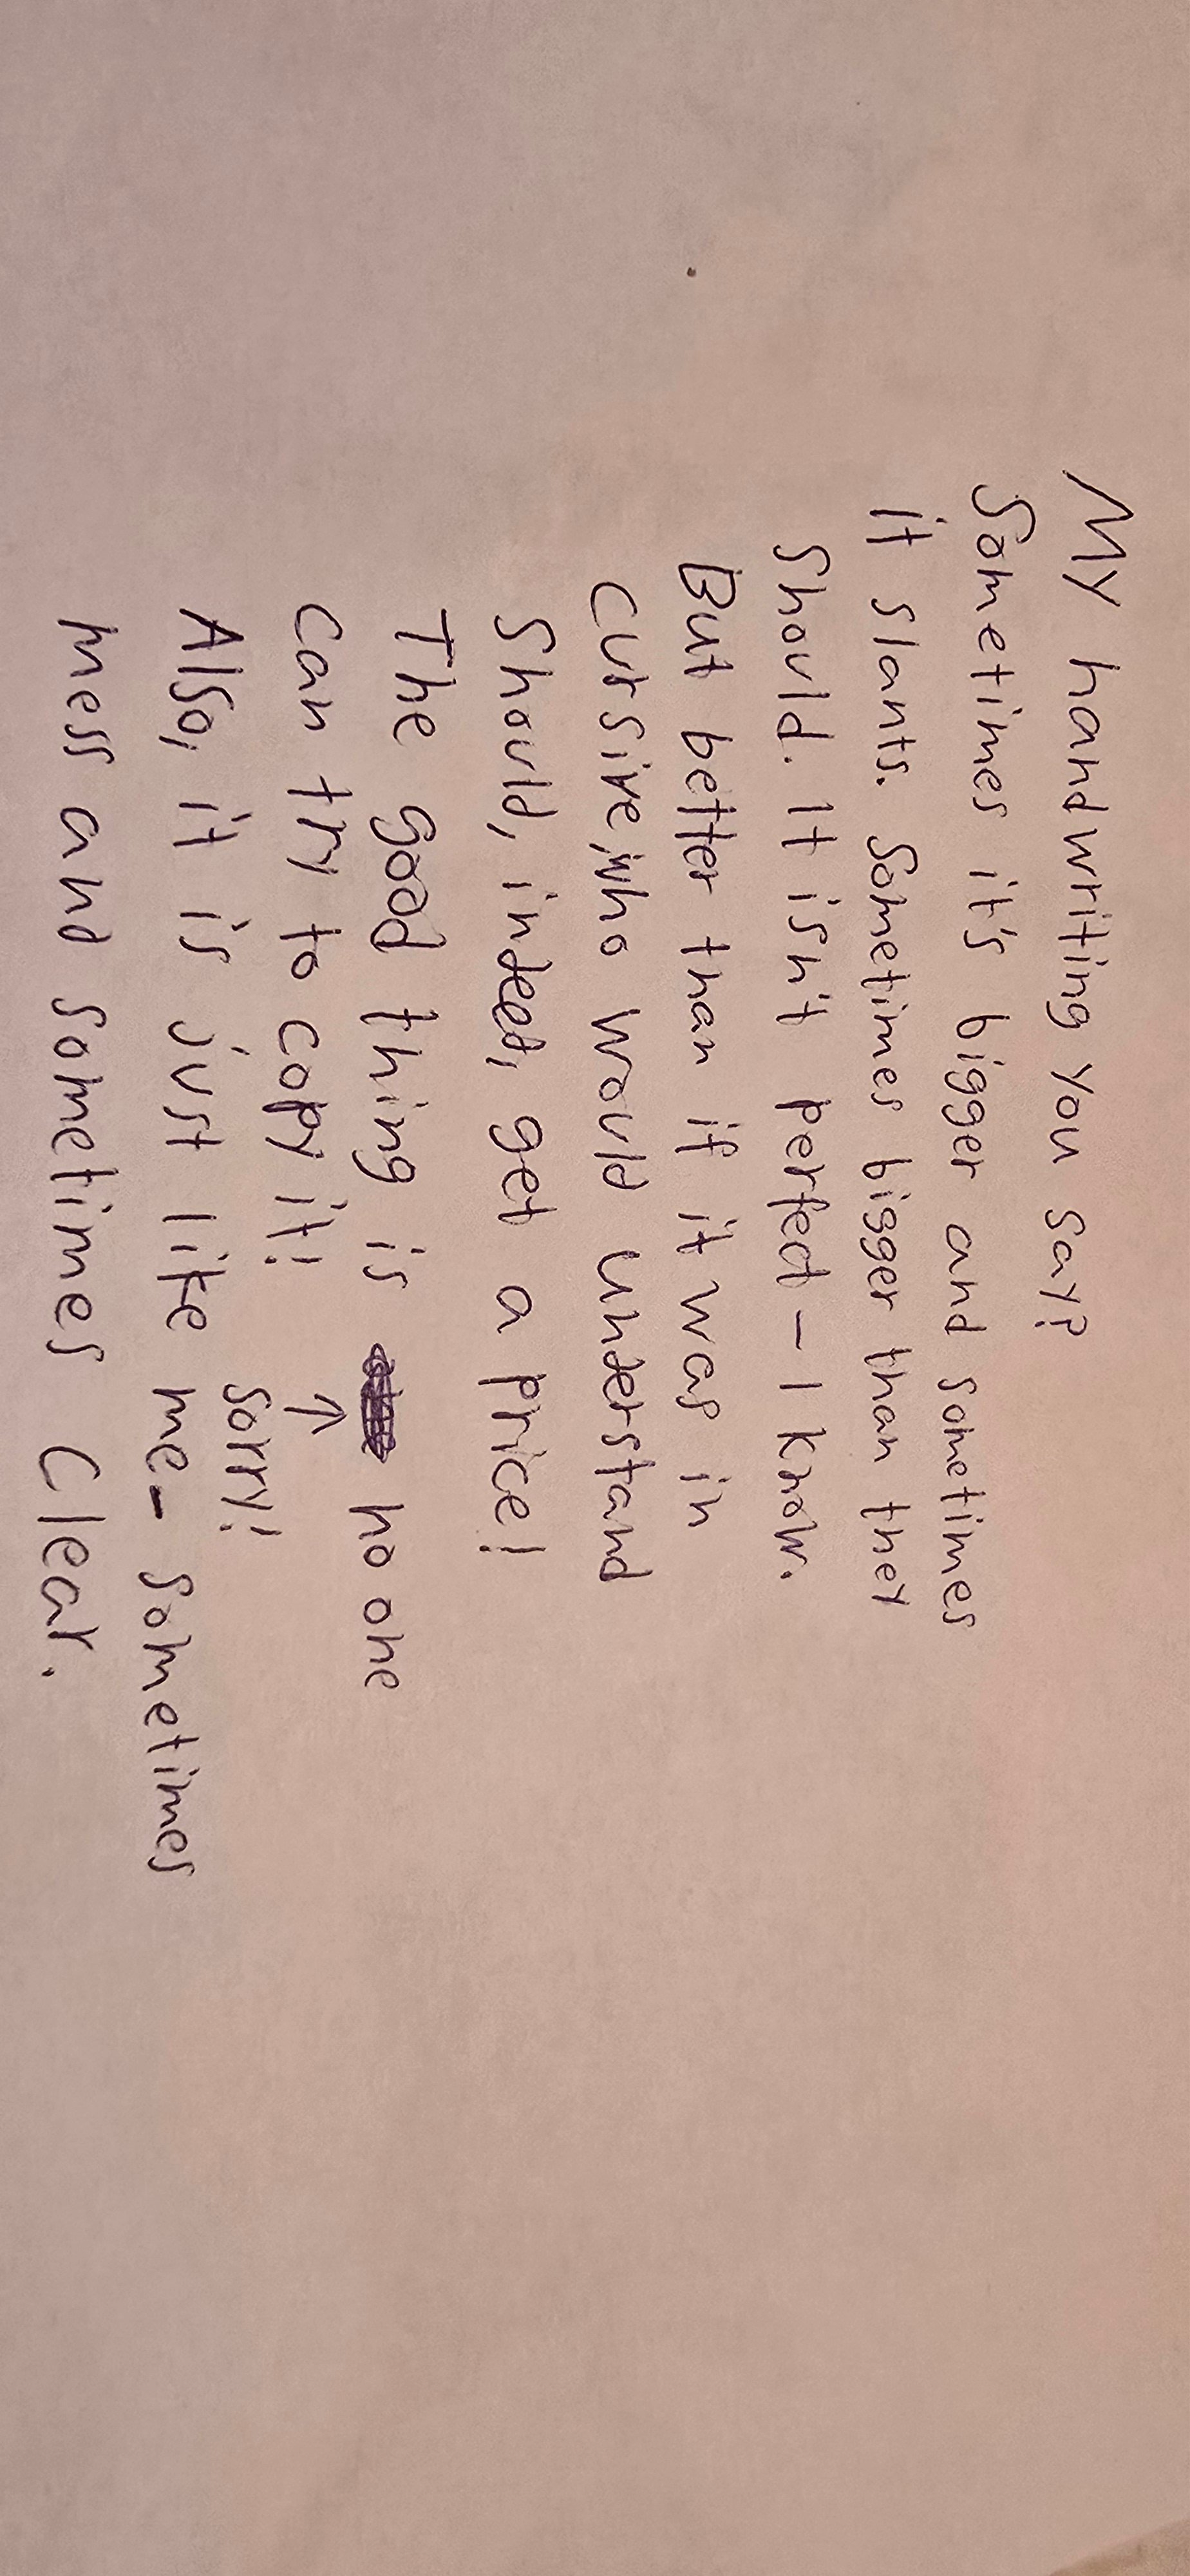 My handwriting you say?
Sometimes it's bigger and sometimes
it slants. Sometimes bigger than they
should. It isn't perfect - I know.
But better than if it was in
cursive, who would understand
should, indeed, get a price!
The good thing is no one
can try to copy it! ↑ sorry!
Also, it is just like me - sometimes
mess and sometimes clear.